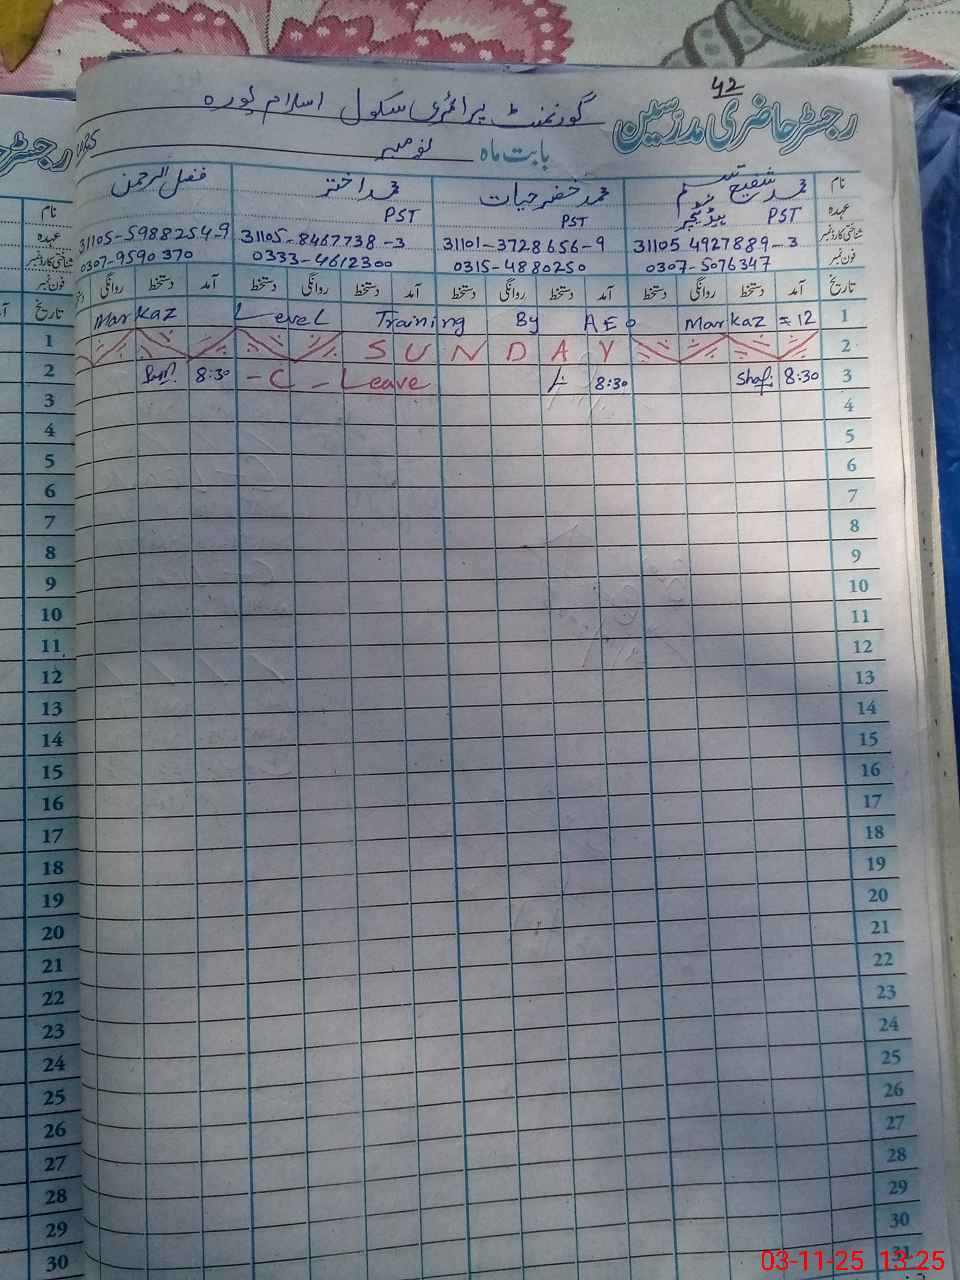 42
رجسٹر حاضری مدرسین
گورنمنٹ پرائمری سکول اسلام پورہ
بابت ماہ نومبر
نام محمد شفیع تبسم محمد خضر حیات محمد اختر فضل الرحمن
عہدہ PST ہیڈ ٹیچر PST PST
شناختی کارڈ نمبر 31105 4927889-3 31101-3728656-9 31105-8467738-3 31105-5988254-9
فون نمبر 0307-5076347 0315-4880250 0333-4612300 0307-9590370
تاریخ آمد دستخط روانگی دستخط آمد دستخط روانگی دستخط آمد دستخط روانگی دستخط آمد دستخط روانگی
1 Markaz Level Training By AEO Markaz = 12
2 SUNDAY
3 8:30 Shafi 8:30 - C - Leave 8:30
4
5
6
7
8
9
10
11
12
13
14
15
16
17
18
19
20
21
22
23
24
25
26
27
28
29
30
31
نام
عہدہ
شناختی کارڈ نمبر
فون نمبر
تاریخ
1
2
3
4
5
6
7
8
9
10
11
12
13
14
15
16
17
18
19
20
21
22
23
24
25
26
27
28
29
30
03-11-25 13:25